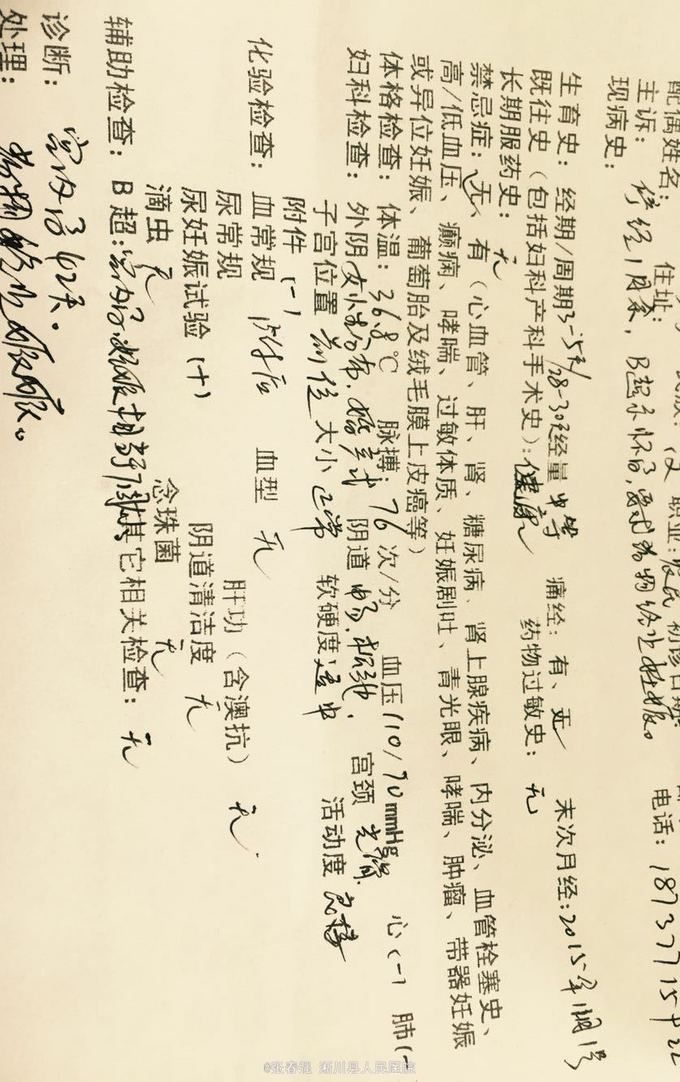 配偶姓名： 住址： 族：汉 职业：农民 初诊日期：
主诉：停经1月余，B超示怀孕，要求药物终止妊娠。 电话：
现病史：
生育史：经期/周期3-5天/28-30天经量中等 痛经：有、无 末次月经：2015年
既往史（包括妇科产科手术史）：健康 药物过敏史：无
长期服药史：无
禁忌症：无、有（心血管、肝、肾、糖尿病、肾上腺疾病、内分泌、血管栓塞史、
高/低血压、癫痫、哮喘、过敏体质、妊娠剧吐、青光眼、哮喘、肿瘤、带器妊娠
或异位妊娠、葡萄胎及绒毛膜上皮癌等）
体格检查：体温：36.8℃ 脉搏：76次/分 血压110/70mmHg 心(-) 肺(-
妇科检查：外阴 阴道 畅 宫颈 光滑
子宫位置 前位 大小 正常 软硬度 适中 活动度 良好
附件 (-)
化验检查：血常规 血型 无 肝功（含澳抗） 无
尿常规 阴道清洁度 无
尿妊娠试验 (+) 念珠菌 无
滴虫 无
辅助检查：B超：宫内孕 其它相关检查：无
诊断：宫内孕42天。
处理：药物终止妊娠。
@张春祖 淅川县人民医院